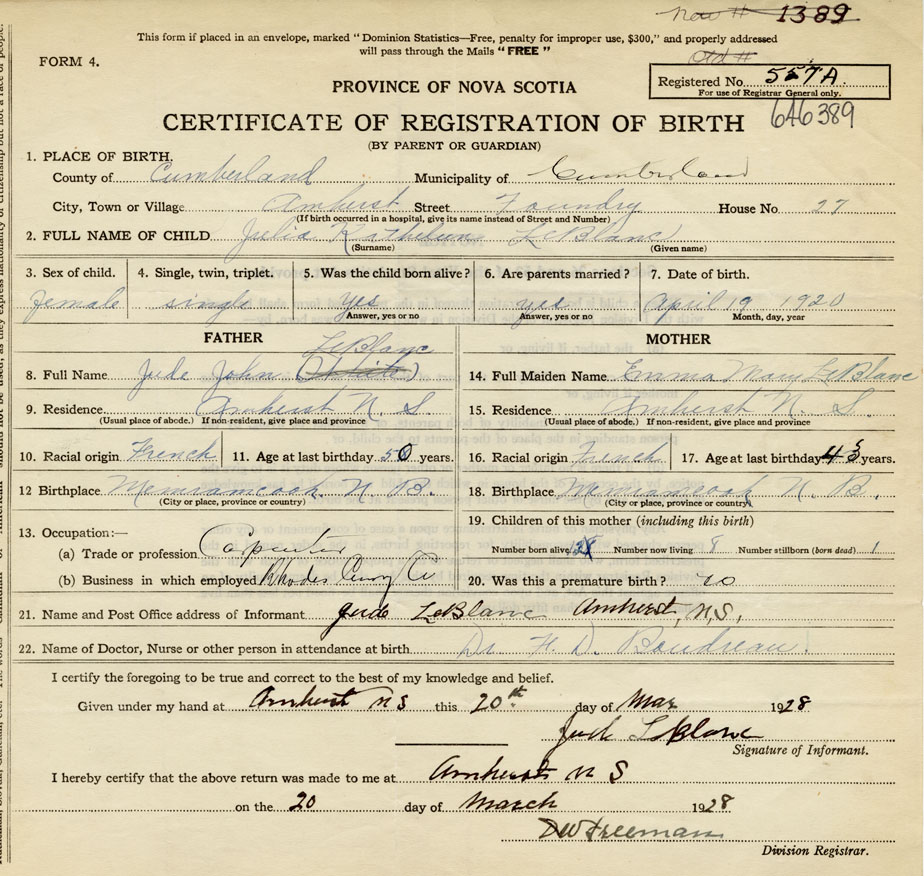 Now # 1389
This form if placed in an envelope, marked "Dominion Statistics—Free, penalty for improper use, $300," and properly addressed
will pass through the Mails "FREE"
FORM 4.
Old #
Registered No. 557A
For use of Registrar General only.
PROVINCE OF NOVA SCOTIA
646389
CERTIFICATE OF REGISTRATION OF BIRTH
(BY PARENT OR GUARDIAN)
1. PLACE OF BIRTH.
County of Cumberland Municipality of Cumberland
City, Town or Village Amherst Street Foundry House No. 27
(If birth occurred in a hospital, give its name instead of Street and Number)
2. FULL NAME OF CHILD Julia Kathleen LeBlanc
(Surname) (Given name)
3. Sex of child. 4. Single, twin, triplet. 5. Was the child born alive? 6. Are parents married? 7. Date of birth.
female single yes yes April 19 1920
Answer, yes or no Answer, yes or no Month, day, year
FATHER MOTHER
LeBlanc
8. Full Name Jude John (White) 14. Full Maiden Name Emma Mary LeBlanc
9. Residence Amherst N. S. 15. Residence Amherst N. S.
(Usual place of abode.) If non-resident, give place and province (Usual place of abode.) If non-resident, give place and province
10. Racial origin French 11. Age at last birthday 50 years. 16. Racial origin French 17. Age at last birthday 43 years.
12 Birthplace Memramcook, N. B. 18. Birthplace Memramcook N. B.
(City or place, province or country) (City or place, province or country)
19. Children of this mother (including this birth)
13. Occupation:—
(a) Trade or profession Carpenter Number born alive Number now living 8 Number stillborn (born dead) 1
(b) Business in which employed Rhodes Curry Co 20. Was this a premature birth? no
21. Name and Post Office address of Informant Jude LeBlanc Amherst, N.S.,
22. Name of Doctor, Nurse or other person in attendance at birth Dr. H. D. Boudreau.
I certify the foregoing to be true and correct to the best of my knowledge and belief.
Given under my hand at Amherst N S this 20th day of Mar 1928
Jude LeBlanc
Signature of Informant.
I hereby certify that the above return was made to me at Amherst N S
on the 20 day of March 1928
DW Freeman
Division Registrar.